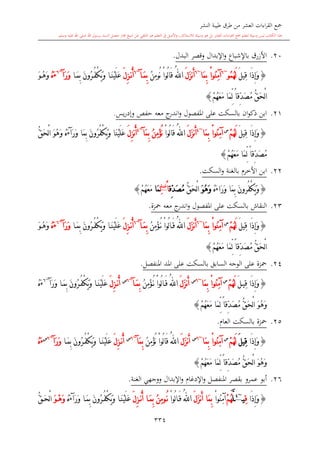 جمع القراءات العشر من طرق طيبة النشر
٢٠. الأزرق بالإشباع والإبدال وقصر البدل.
﴿ وَإِذَا قِيلَ لَهُمُۥٓ ءَامِنُواْ بِمَآ أَنزَلَ ٱللَّهُ قَالُواْ نُومِنُ بِمَآ أُنزِلَ عَلَيْنَا وَيَكْفُرُونَ بِمَا وَرَآءَهُۥ وَهُوَ
ٱلْحَقُّ مُصَدِّقاً لِّمَا مَعَهُمْ ﴾
٢١. ابن ذكوان بالسكت على المفصول واندرج معه حفص وإدريس.
﴿ وَإِذَا قِيلَ لَهُمْ ءَامِنُواْ بِمَآ أَنزَلَ ٱللَّهُ قَالُواْ نُؤْمِنُ بِمَآ أُنزِلَ عَلَيْنَا وَيَكْفُرُونَ بِمَا وَرَآءَهُۥ وَهُوَ ٱلْحَقُّ
مُصَدِّقاً لِّمَا مَعَهُمْ ﴾
٢٢. ابن الأخرم بالغنة والسكت.
﴿ وَيَكْفُرُونَ بِمَا وَرَآءَهُۥ وَهُوَ ٱلْحَقُّ مُصَدِّقاً لِّمَا مَعَهُمْ ﴾
٢٣. النقاش بالسكت على المفصول واندرج معه حمزة.
﴿ وَإِذَا قِيلَ لَهُمْ ءَامِنُواْ بِمَآ أَنزَلَ ٱللَّهُ قَالُواْ نُؤْمِنُ بِمَآ أُنزِلَ عَلَيْنَا وَيَكْفُرُونَ بِمَا وَرَآءَهُۥ وَهُوَ
ٱلْحَقُّ مُصَدِّقاً لِّمَا مَعَهُمْ ﴾
٢٤. حمزة على الوجه السابق بالسكت على المد المنفصل.
﴿ وَإِذَا قِيلَ لَهُمْ ءَامِنُواْ بِمَآ أَنزَلَ ٱللَّهُ قَالُواْ نُؤْمِنُ بِمَآ أُنزِلَ عَلَيْنَا وَيَكْفُرُونَ بِمَا وَرَآءَهُۥ
وَهُوَ ٱلْحَقُّ مُصَدِّقاً لِّمَا مَعَهُمْ ﴾
٢٥. حمزة بالسكت العام.
﴿ وَإِذَا قِيلَ لَهُمْ ءَامِنُواْ بِمَآ أَنزَلَ ٱللَّهُ قَالُواْ نُؤْمِنُ بِمَآ أُنزِلَ عَلَيْنَا وَيَكْفُرُونَ بِمَا وَرَآءَهُۥ
وَهُوَ ٱلْحَقُّ مُصَدِّقاً لِّمَا مَعَهُمْ ﴾
٢٦. أبو عمرو بقصر المنفصل والإدغام والإبدال ووجهي الغنة.
﴿ وَإِذَا قِيلَ لَّهُمْ ءَامِنُواْ بِمَآ أَنزَلَ ٱللَّهُ قَالُواْ نُومِنُ بِمَآ أُنزِلَ عَلَيْنَا وَيَكْفُرُونَ بِمَا وَرَآءَهُۥ وَهُوَ ٱلْحَقُّ
٣٣٤